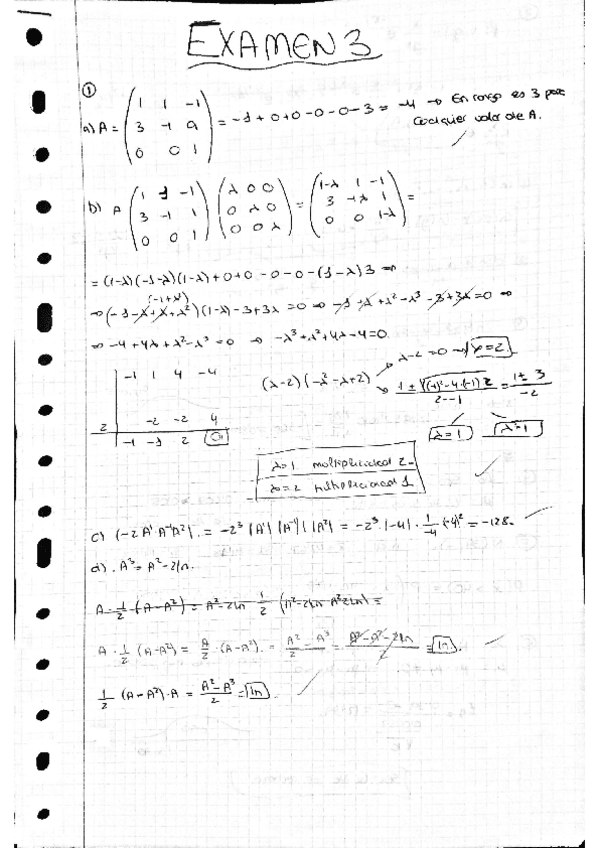 EXAMEN 3
①
a) A = ( 1 1 -1 ; 3 -1 a ; 0 0 1 ) = -1+0+0-0-0-3 = -4 → En rango es 3 para
cualquier valor de A.
b) A ( 1 1 -1 ; 3 -1 1 ; 0 0 1 ) ( λ 0 0 ; 0 λ 0 ; 0 0 λ ) = ( 1-λ 1 -1 ; 3 -1-λ 1 ; 0 0 1-λ ) =
= (1-λ)(-1-λ)(1-λ)+0+0-0-0-(1-λ)3 ⇒
(-1+λ²)
⇒ (-1-λ+λ+λ²)(1-λ)-3+3λ=0 ⇒ -1+λ+λ²-λ³-3+3λ=0 ⇒
⇒ -4+4λ+λ²-λ³=0 → -λ³+λ²+4λ-4=0.
-1 1 4 -4
(λ-2)(-λ²-λ+2)
λ-2=0 → λ=2.
1±√(-1)²-4·(-1)·2 / 2·-1 = 1±3 / -2
2 -2 -2 4
-1 -1 2 0
λ=1
λ=1 multiplicidad 2
λ=2 multiplicidad 1
c) |-2A^t A^-1 A²| = -2³ |A^t| |A^-1| |A²| = -2³·|-4|·1/-4·(-4)² = -128.
d) A³=A²-2In.
A·1/2·(A-A²) = A/2·(A-A²) = A²-A³ / 2 = A²-A²-2In / 2 = In.
1/2 (A-A²)·A = A²-A³ / 2 = In